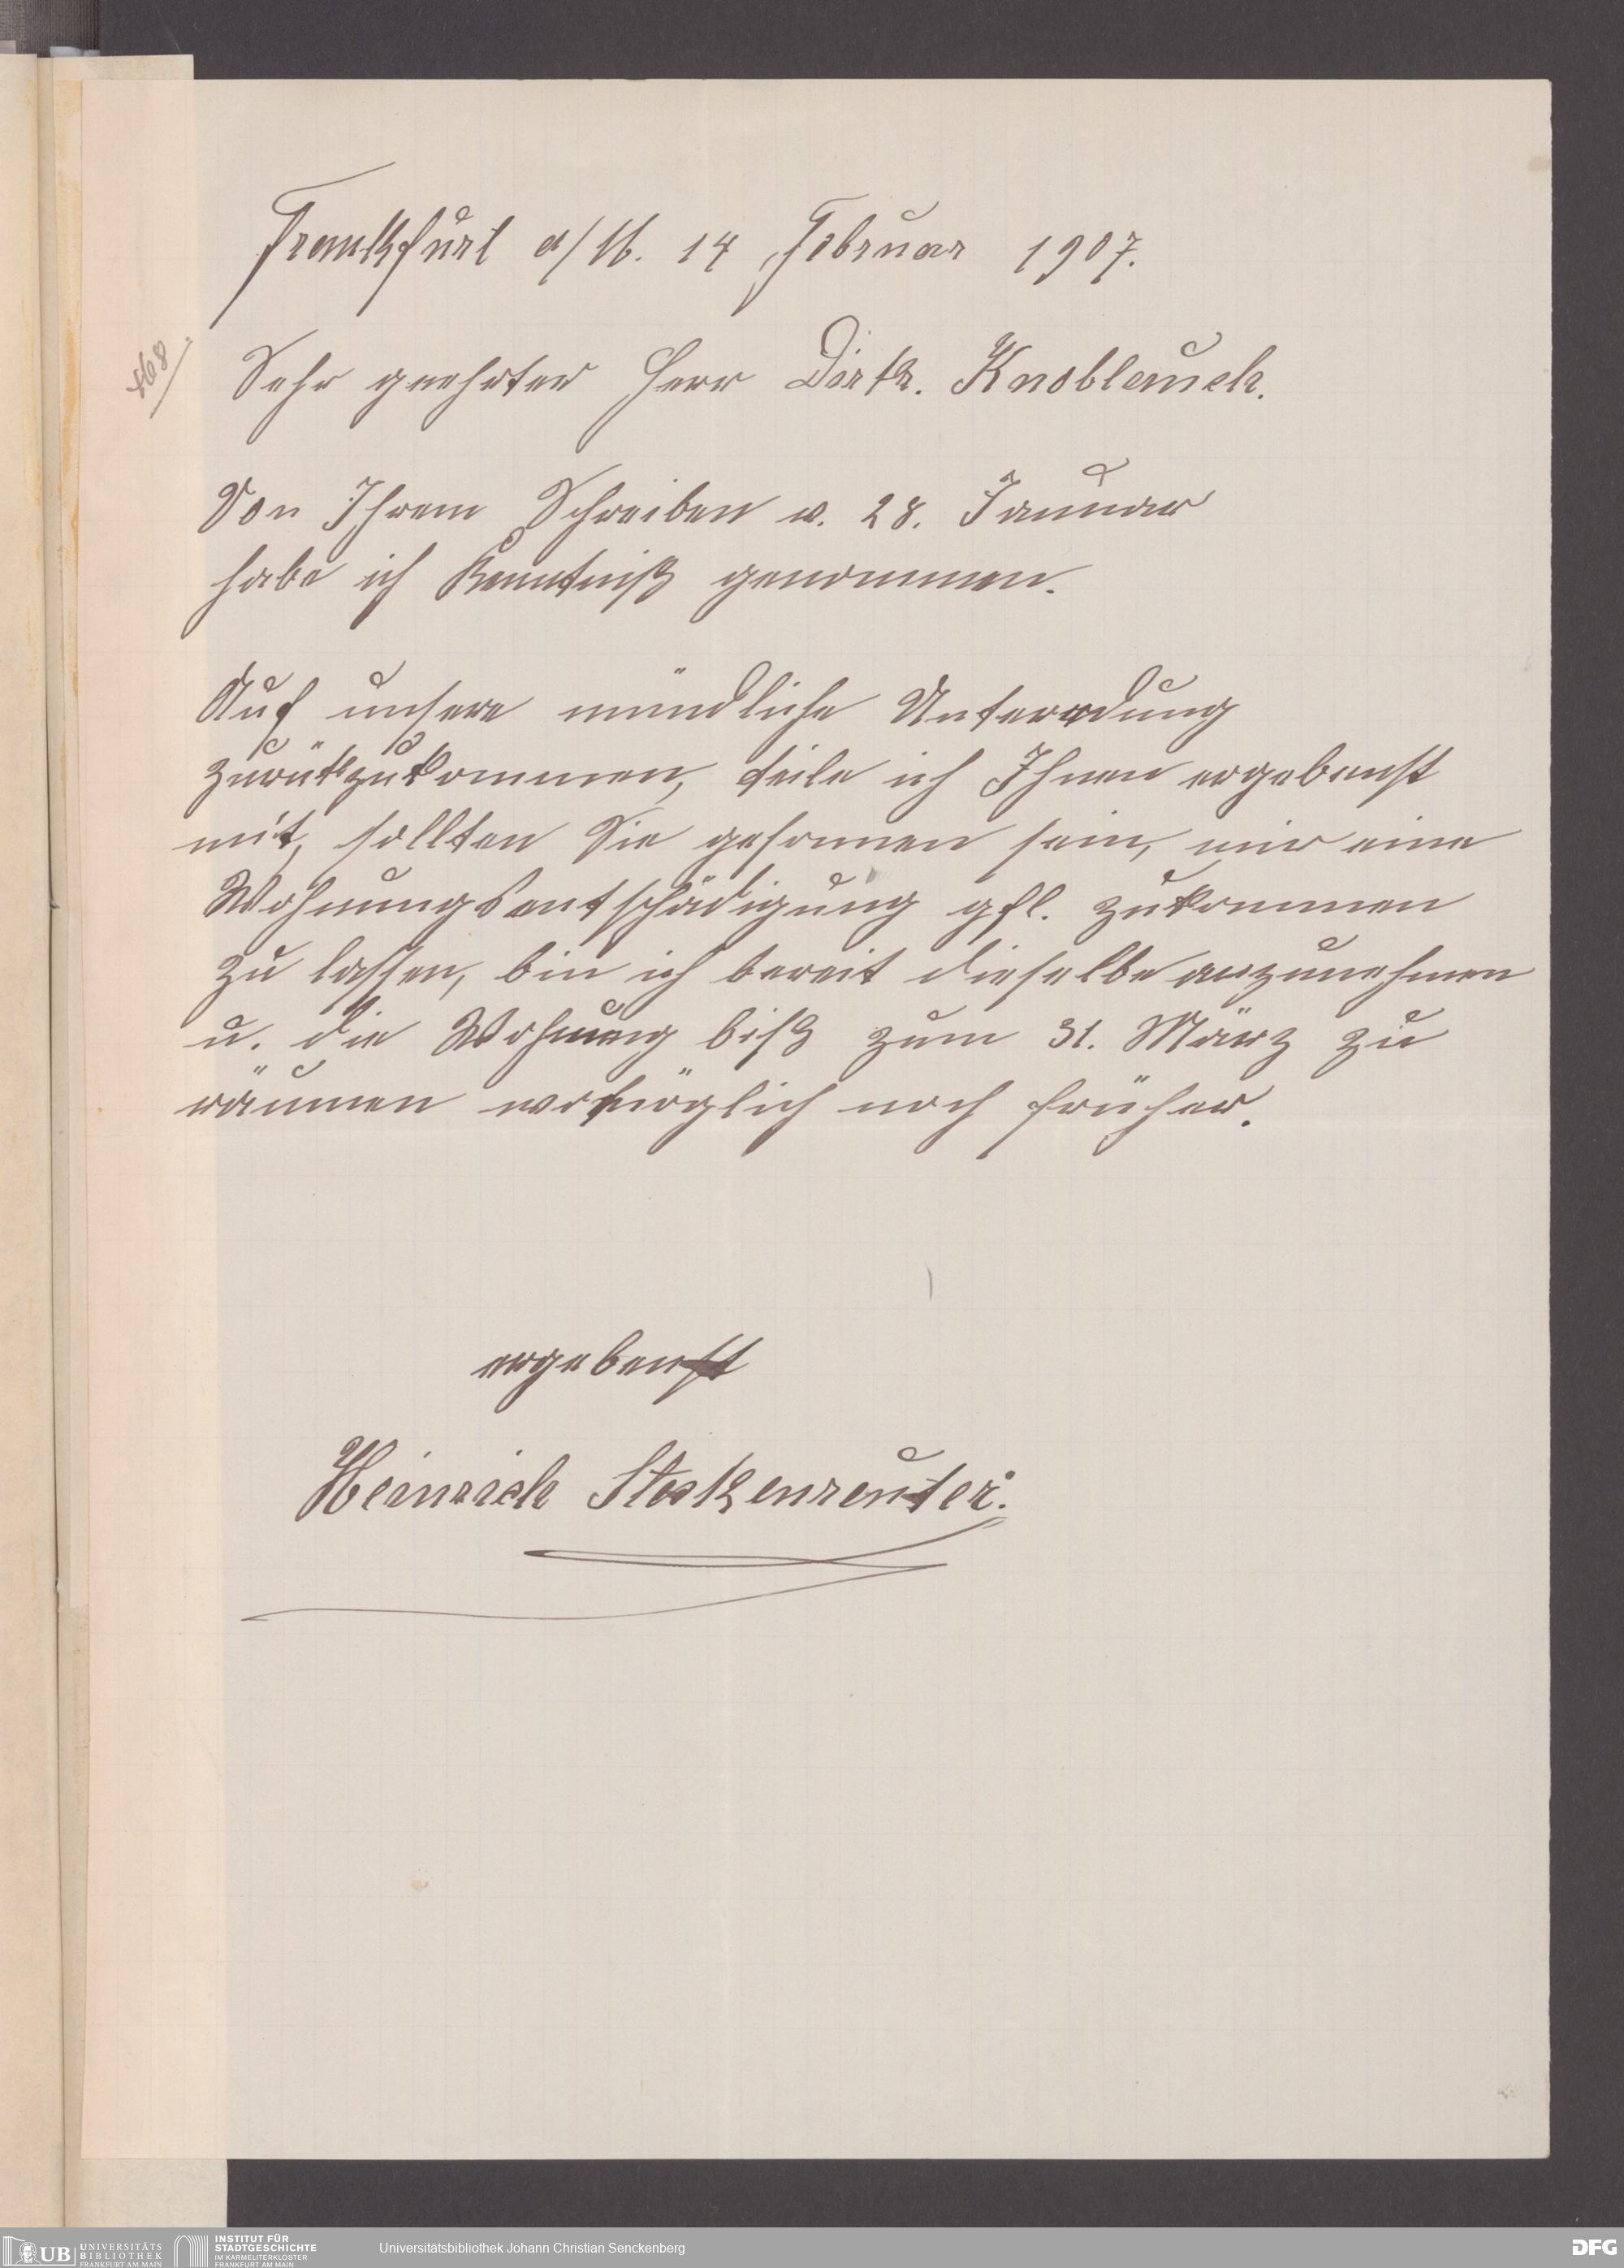 Frankfurt a/M. 14 Februar 1907.
468
Sehr geehrter Herr Dirkt. Knoblauch.
Von Ihrem Schreiben v. 28. Januar
habe ich Kenntniß genommen.
Auf unsere mündliche Unterredung
zurükzukommen, teile ich Ihnen ergebenst
mit, sollten Sie gesonnen sein, mir eine
Wohnungsentschädigung gfl. zukommen
zu lassen, bin ich bereit dieselbe anzunehmen
u. die Wohnung biß zum 31. März zu
räumen womöglich noch früher.
ergebenst
Heinrich Stockenreuter.
UB UNIVERSITÄTS
BIBLIOTHEK
FRANKFURT AM MAIN
INSTITUT FÜR
STADTGESCHICHTE
IM KARMELITERKLOSTER
FRANKFURT AM MAIN
Universitätsbibliothek Johann Christian Senckenberg
DFG